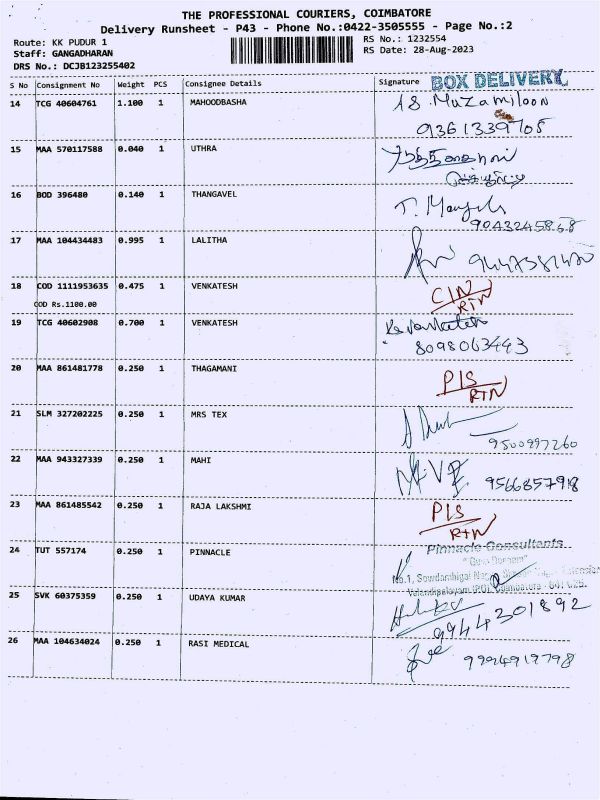 THE PROFESSIONAL COURIERS, COIMBATORE
Delivery Runsheet - P43 - Phone No.:0422-3505555 - Page No.:2
Route: KK PUDUR 1
RS No.: 1232554
Staff: GANGADHARAN
RS Date: 28-Aug-2023
DRS No.: DCJB123255402
BOX DELIVERY
S No Consignment No Weight PCS Consignee Details Signature
14 TCG 40604761 1.100 1 MAHOODBASHA
AS. Muzamiloon
9361339705
15 MAA 570117588 0.040 1 UTHRA
16 BOD 396480 0.140 1 THANGAVEL
9043245868
17 MAA 104434483 0.995 1 LALITHA
18 COD 1111953635 0.475 1 VENKATESH CIN
COD Rs.1100.00 RTN
19 TCG 40602908 0.700 1 VENKATESH
8098063443
20 MAA 861481778 0.250 1 THAGAMANI PIS
RTN
21 SLM 327202225 0.250 1 MRS TEX
9500997260
22 MAA 943327339 0.250 1 MAHI
9566857918
23 MAA 861485542 0.250 1 RAJA LAKSHMI PIS
RTN
24 TUT 557174 0.250 1 PINNACLE
Pinnacle Consultants
25 SVK 60375359 0.250 1 UDAYA KUMAR
9944301892
26 MAA 104634024 0.250 1 RASI MEDICAL
9994919798